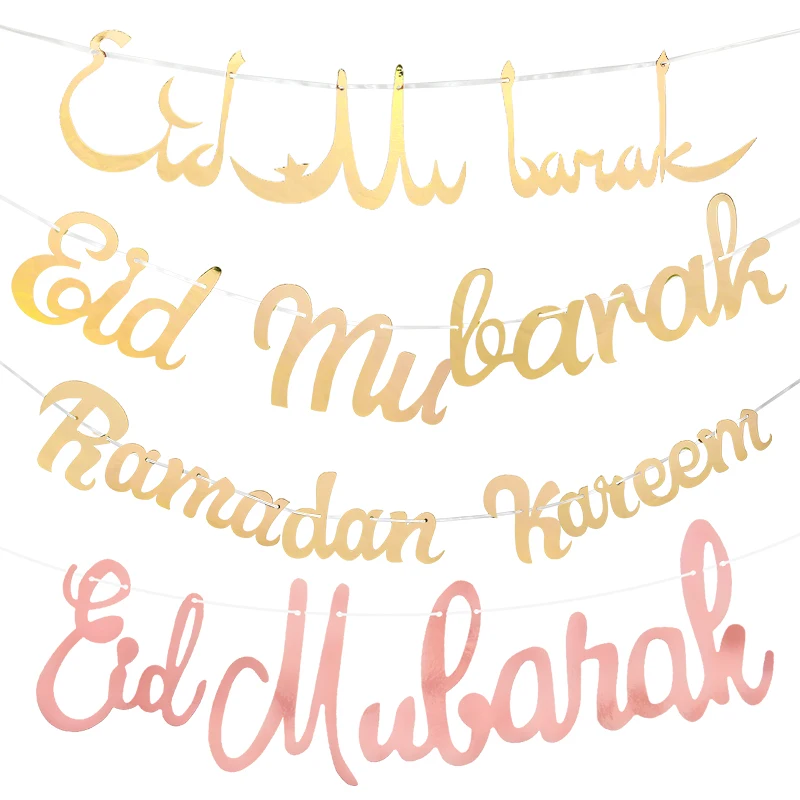 Eid Mubarak
Eid Mubarak
Ramadan Kareem
Eid Mubarak